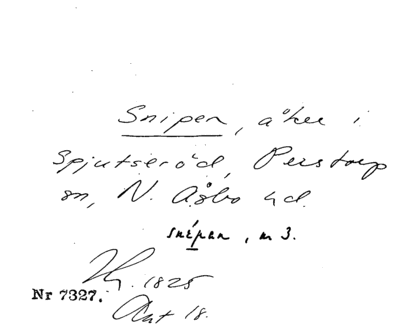 Snipen, åker i
Spjutseröd, Perstorp
sn, N. Åsbo hd.
snépen, m 3.
1825
Nr 7327.
Akt 18.